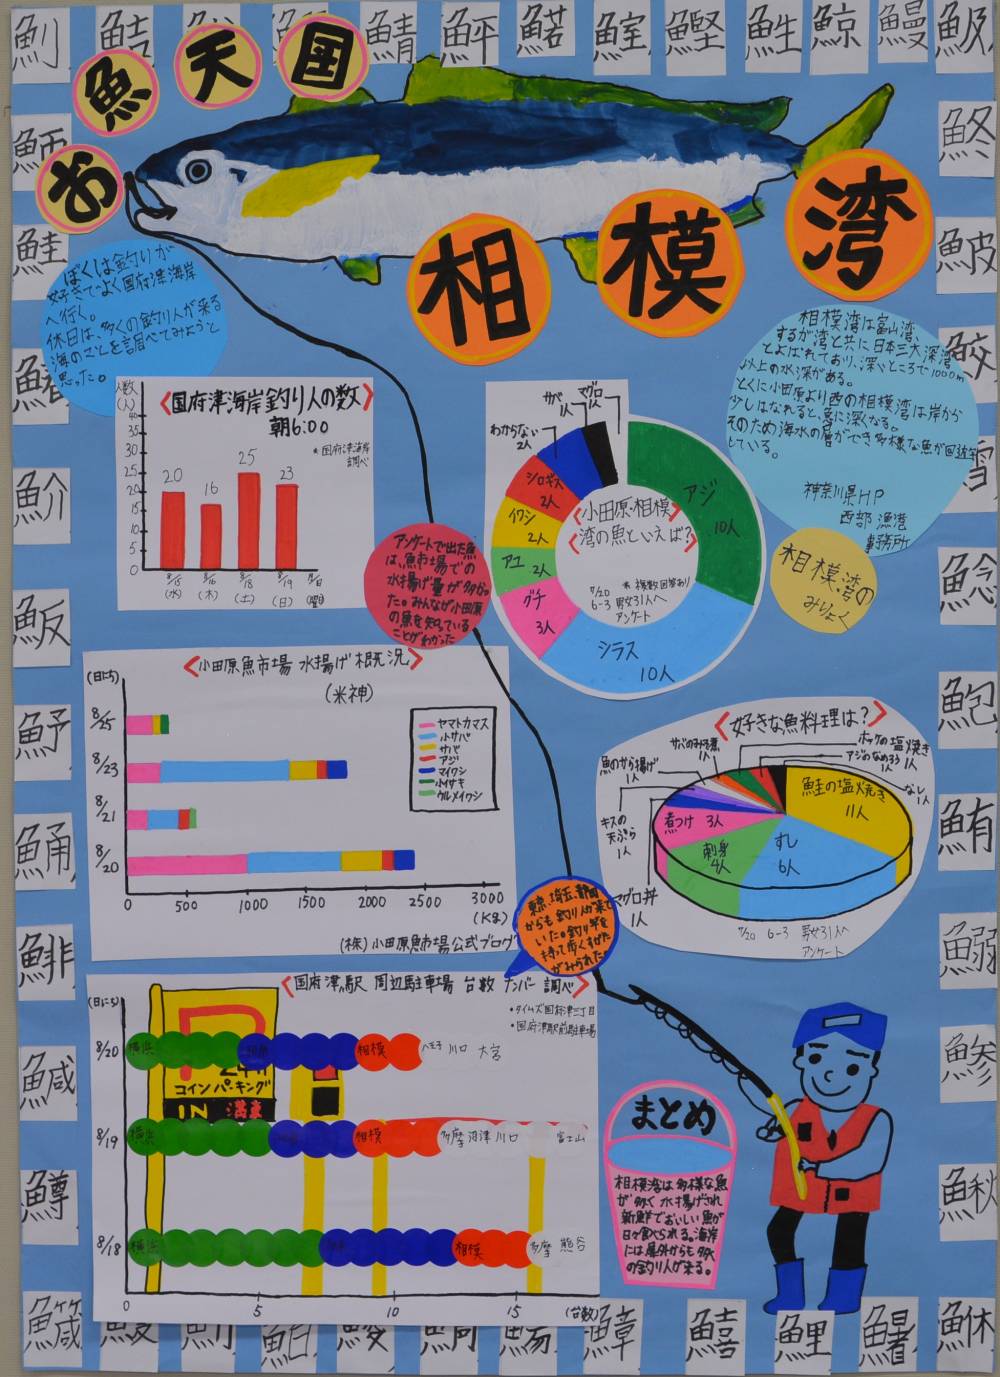 お魚天国
相模湾
ぼくは釣りが
好きでよく国府津海岸
へ行く。
休日は、多くの釣り人が来る
海のことを調べてみようと
思った。
相模湾は富山湾、
するが湾と共に日本三大深湾
とよばれており、深いところで1000m
以上の水深がある。
とくに小田原より西の相模湾は岸から
少しはなれると、急に深くなる。
そのため海水の層ができ多様な魚が回遊
している。
神奈川県HP
西部漁港
事務所
相模湾の
みりょく
《国府津海岸釣り人の数》
朝6:00
*国府津海岸
調べ
人数
(人)
40
35
30
25
20
15
10
5
0
20
16
25
23
8/15
(水)
8/16
(木)
8/18
(土)
8/19
(日)
(曜日)
アンケートで出た魚
は、魚市場での
水揚げ量が多かっ
た。みんなが小田原
の魚を知っている
ことがわかった
《小田原・相模
湾の魚といえば?》
*複数回答あり
7/20
6-3 男女31人へ
アンケート
アジ
10人
シラス
10人
グチ
3人
アユ 2人
イワシ
2人
シロギス
2人
わからない
2人
サバ
1人
マグロ
1人
《小田原魚市場 水揚げ概況》
(米神)
(日にち)
8/25
8/23
8/21
8/20
ヤマトカマス
小サバ
サバ
アジ
マイワシ
小イサキ
ウルメイワシ
0 500 1000 1500 2000 2500 3000
(Kg)
(株)小田原魚市場公式ブログ
《好きな魚料理は?》
鮭の塩焼き
11人
すし
6人
刺身
4人
煮つけ 3人
マグロ丼
1人
キスの
天ぷら
1人
魚のから揚げ
1人
サバのみそ煮
1人
ホッケの塩焼き
1人
アジのなめろう
1人
なし
1人
7/20 6-3 男女31人へ
アンケート
東京、埼玉、静岡
からも釣り人が来て
いた。釣り竿を
持って歩くすがた
がみられた
《国府津駅 周辺駐車場 台数 ナンバー 調べ》
•タイムズ国府津三丁目
•国府津駅前駐車場
(日にち)
8/20
横浜
相模
八王子 川口 大宮
コインパーキング
IN 満車
8/19
横浜
相模
多摩 沼津 川口 富士山
8/18
横浜
相模
多摩 熊谷
0 5 10 15 (台数)
まとめ
相模湾は多様な魚
が多く水揚げされ
新鮮でおいしい魚が
日々食べられる。海岸
には県外からも多く
の釣り人が来る。